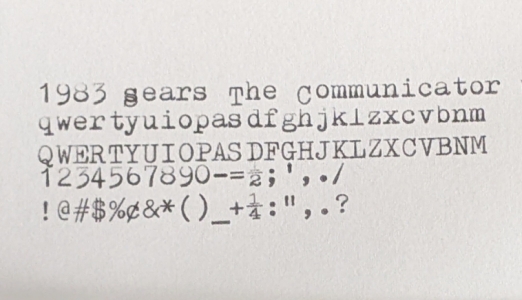 1983 sears The Communicator
qwertyuiopasdfghjklzxcvbnm
QWERTYUIOPASDFGHJKLZXCVBNM
1234567890-=½;',./
!@#$%¢&*()_+¼:",.?